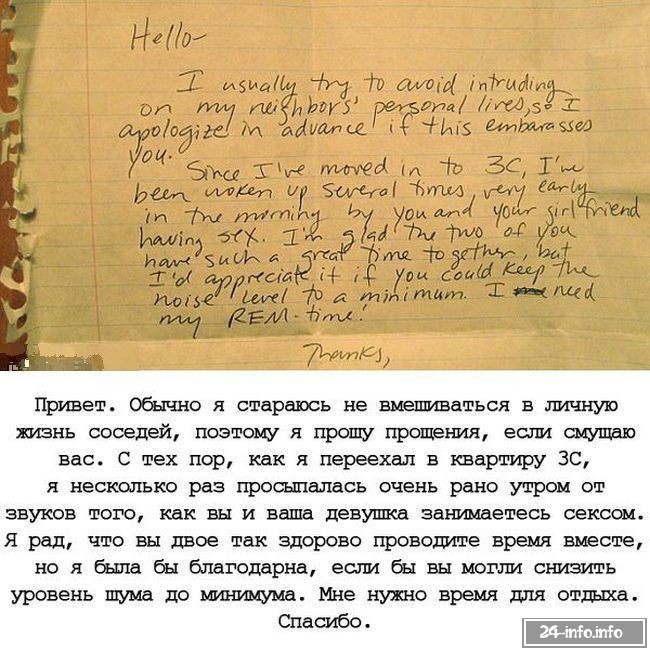 Hello-
I usually try to avoid intruding
on my neighbors' personal lives, so I
apologize in advance if this embarasses
you.
Since I've moved in to 3C, I've
been woken up several times, very early
in the morning by you and your girlfriend
having sex. I'm glad the two of you
have such a great time together, but
I'd appreciate it if you could keep the
noise level to a minimum. I need
my REM-time!
Thanks,
Привет. Обычно я стараюсь не вмешиваться в личную
жизнь соседей, поэтому я прошу прощения, если смущаю
вас. С тех пор, как я переехал в квартиру 3С,
я несколько раз просыпалась очень рано утром от
звуков того, как вы и ваша девушка занимаетесь сексом.
Я рад, что вы двое так здорово проводите время вместе,
но я была бы благодарна, если бы вы могли снизить
уровень шума до минимума. Мне нужно время для отдыха.
Спасибо.
24-info.info